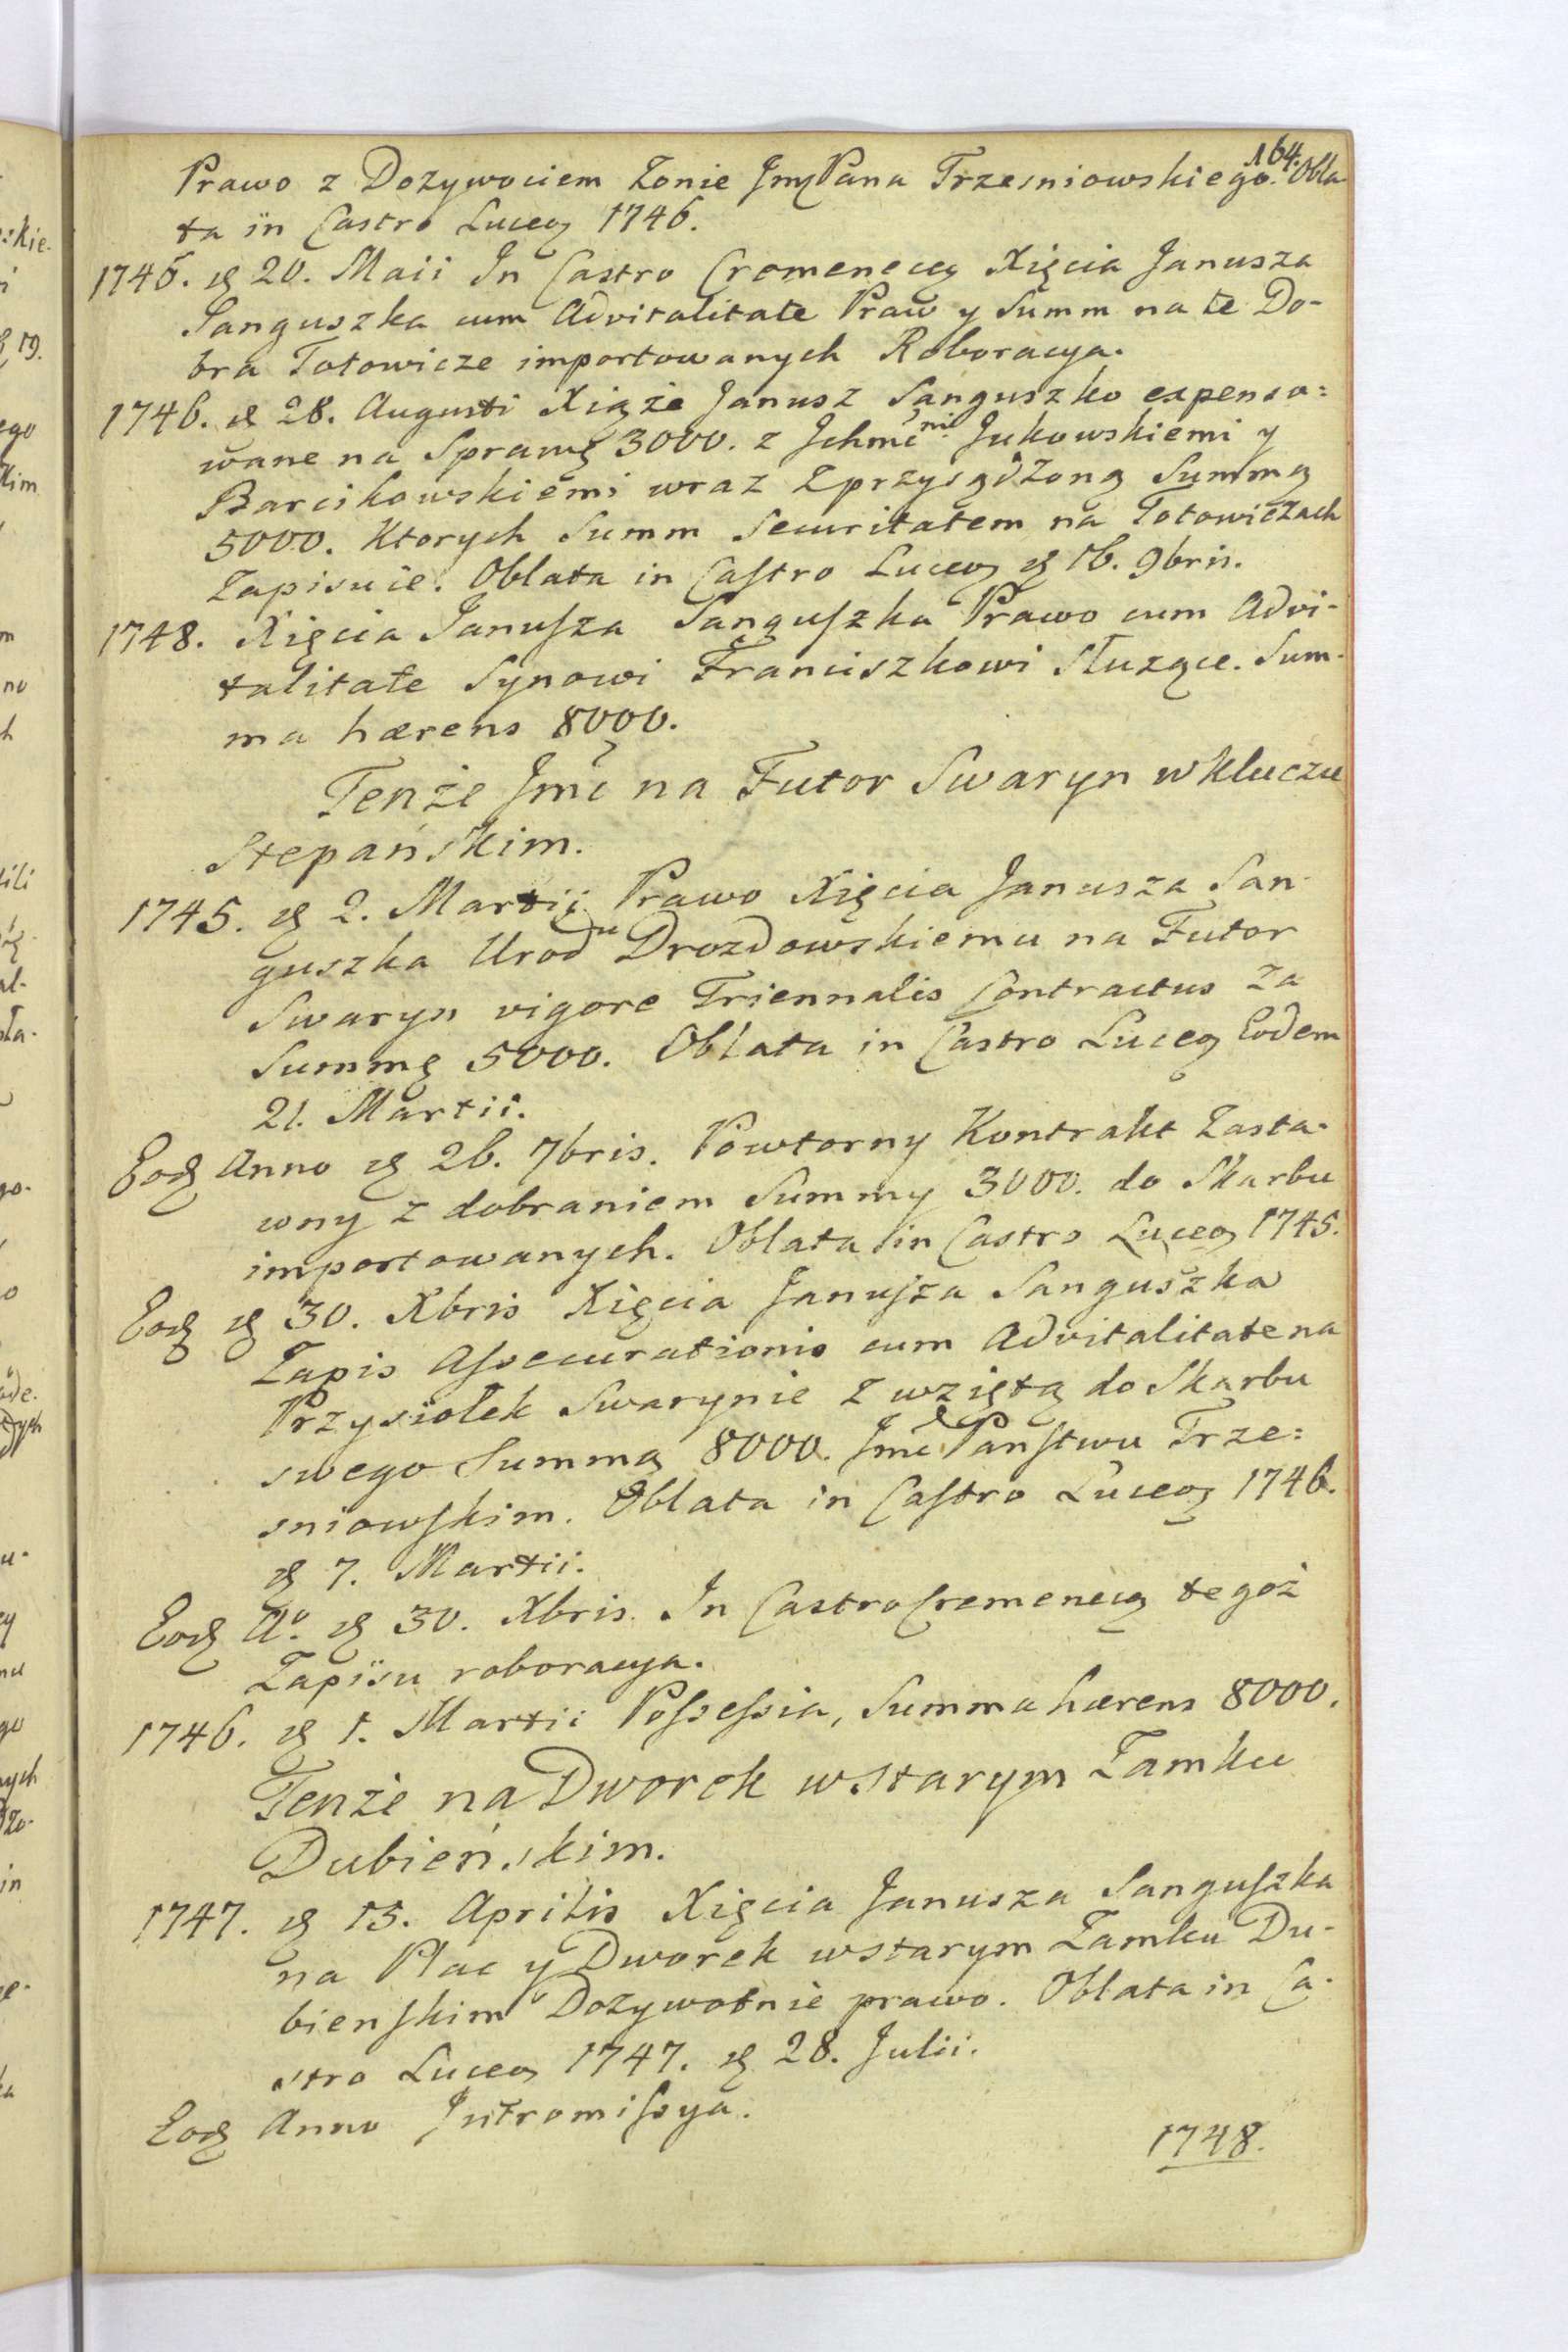 164.
Prawo z Dozywociem Zonie Jmp Pana Trzesniowskiego. Obla-
ta in Castro Luceo 1746.
1746. d 20. Maii In Castro Cremeneceo Xięcia Janusza
Sanguszka cum Advitalitate Praw y Summ na te Do-
bra Totowicze importowanych Roboracya.
1746. d 28. Augusti Xiąże Janusz Sanguszko expenso=
wane na Sprawę 3000. z Jchmć ni Jukowskiemi y
Barcikowskiemi wraz z przysądzoną Summą
5000. Ktorych Summ Securitatem na Totowiczach
Zapisuie. Oblata in Castro Luceo d 16. 9bris.
1748. Xięcia Janusza Sanguszka Prawo cum Advi-
talitate Synowi Franciszkowi Służące. Sum-
ma hærens 8000.
Tenże Jmć na Futor Swaryn w Kluczu
Stepańskim.
1745. d 2. Martii Prawo Xięcia Janusza San-
guszka Urod u Drozdowskiemu na Futor
Swaryn vigore Triennalis Contractus za
Summę 5000. Oblata in Castro Luceo Eodem
21. Martii.
Eod Anno d 26. 7bris. Powtorny Kontrakt Zasta-
wny z dobraniem Summy 3000. do Skarbu
importowanych. Oblata in Castro Luceo 1745.
Eod d 30. Xbris Xięcia Janusza Sanguszka
Zapis Assecurationis cum Advitalitate na
Przysiołek Swarynie z wziętą do Skarbu
swego Summą 8000. Jmć Państwu Trze=
sniowskim. Oblata in Castro Luceo 1746.
d 7. Martii.
Eod Ao. d 30. Xbris. In Castro Cremeneco tegoż
Zapisu roboracya.
1746. d 1. Martii Possessia, Summa hærens 8000.
Tenże na Dworek w Starym Zamku
Dubieńskim.
1747. d 15. Aprilis Xięcia Janusza Sanguszka
na Plac y Dworek w starym Zamku Du-
bienskim Dozywotnie prawo. Oblata in Ca-
stro Luceo 1747. d 28. Julii.
Eod Anno Jntromissya.
1748.